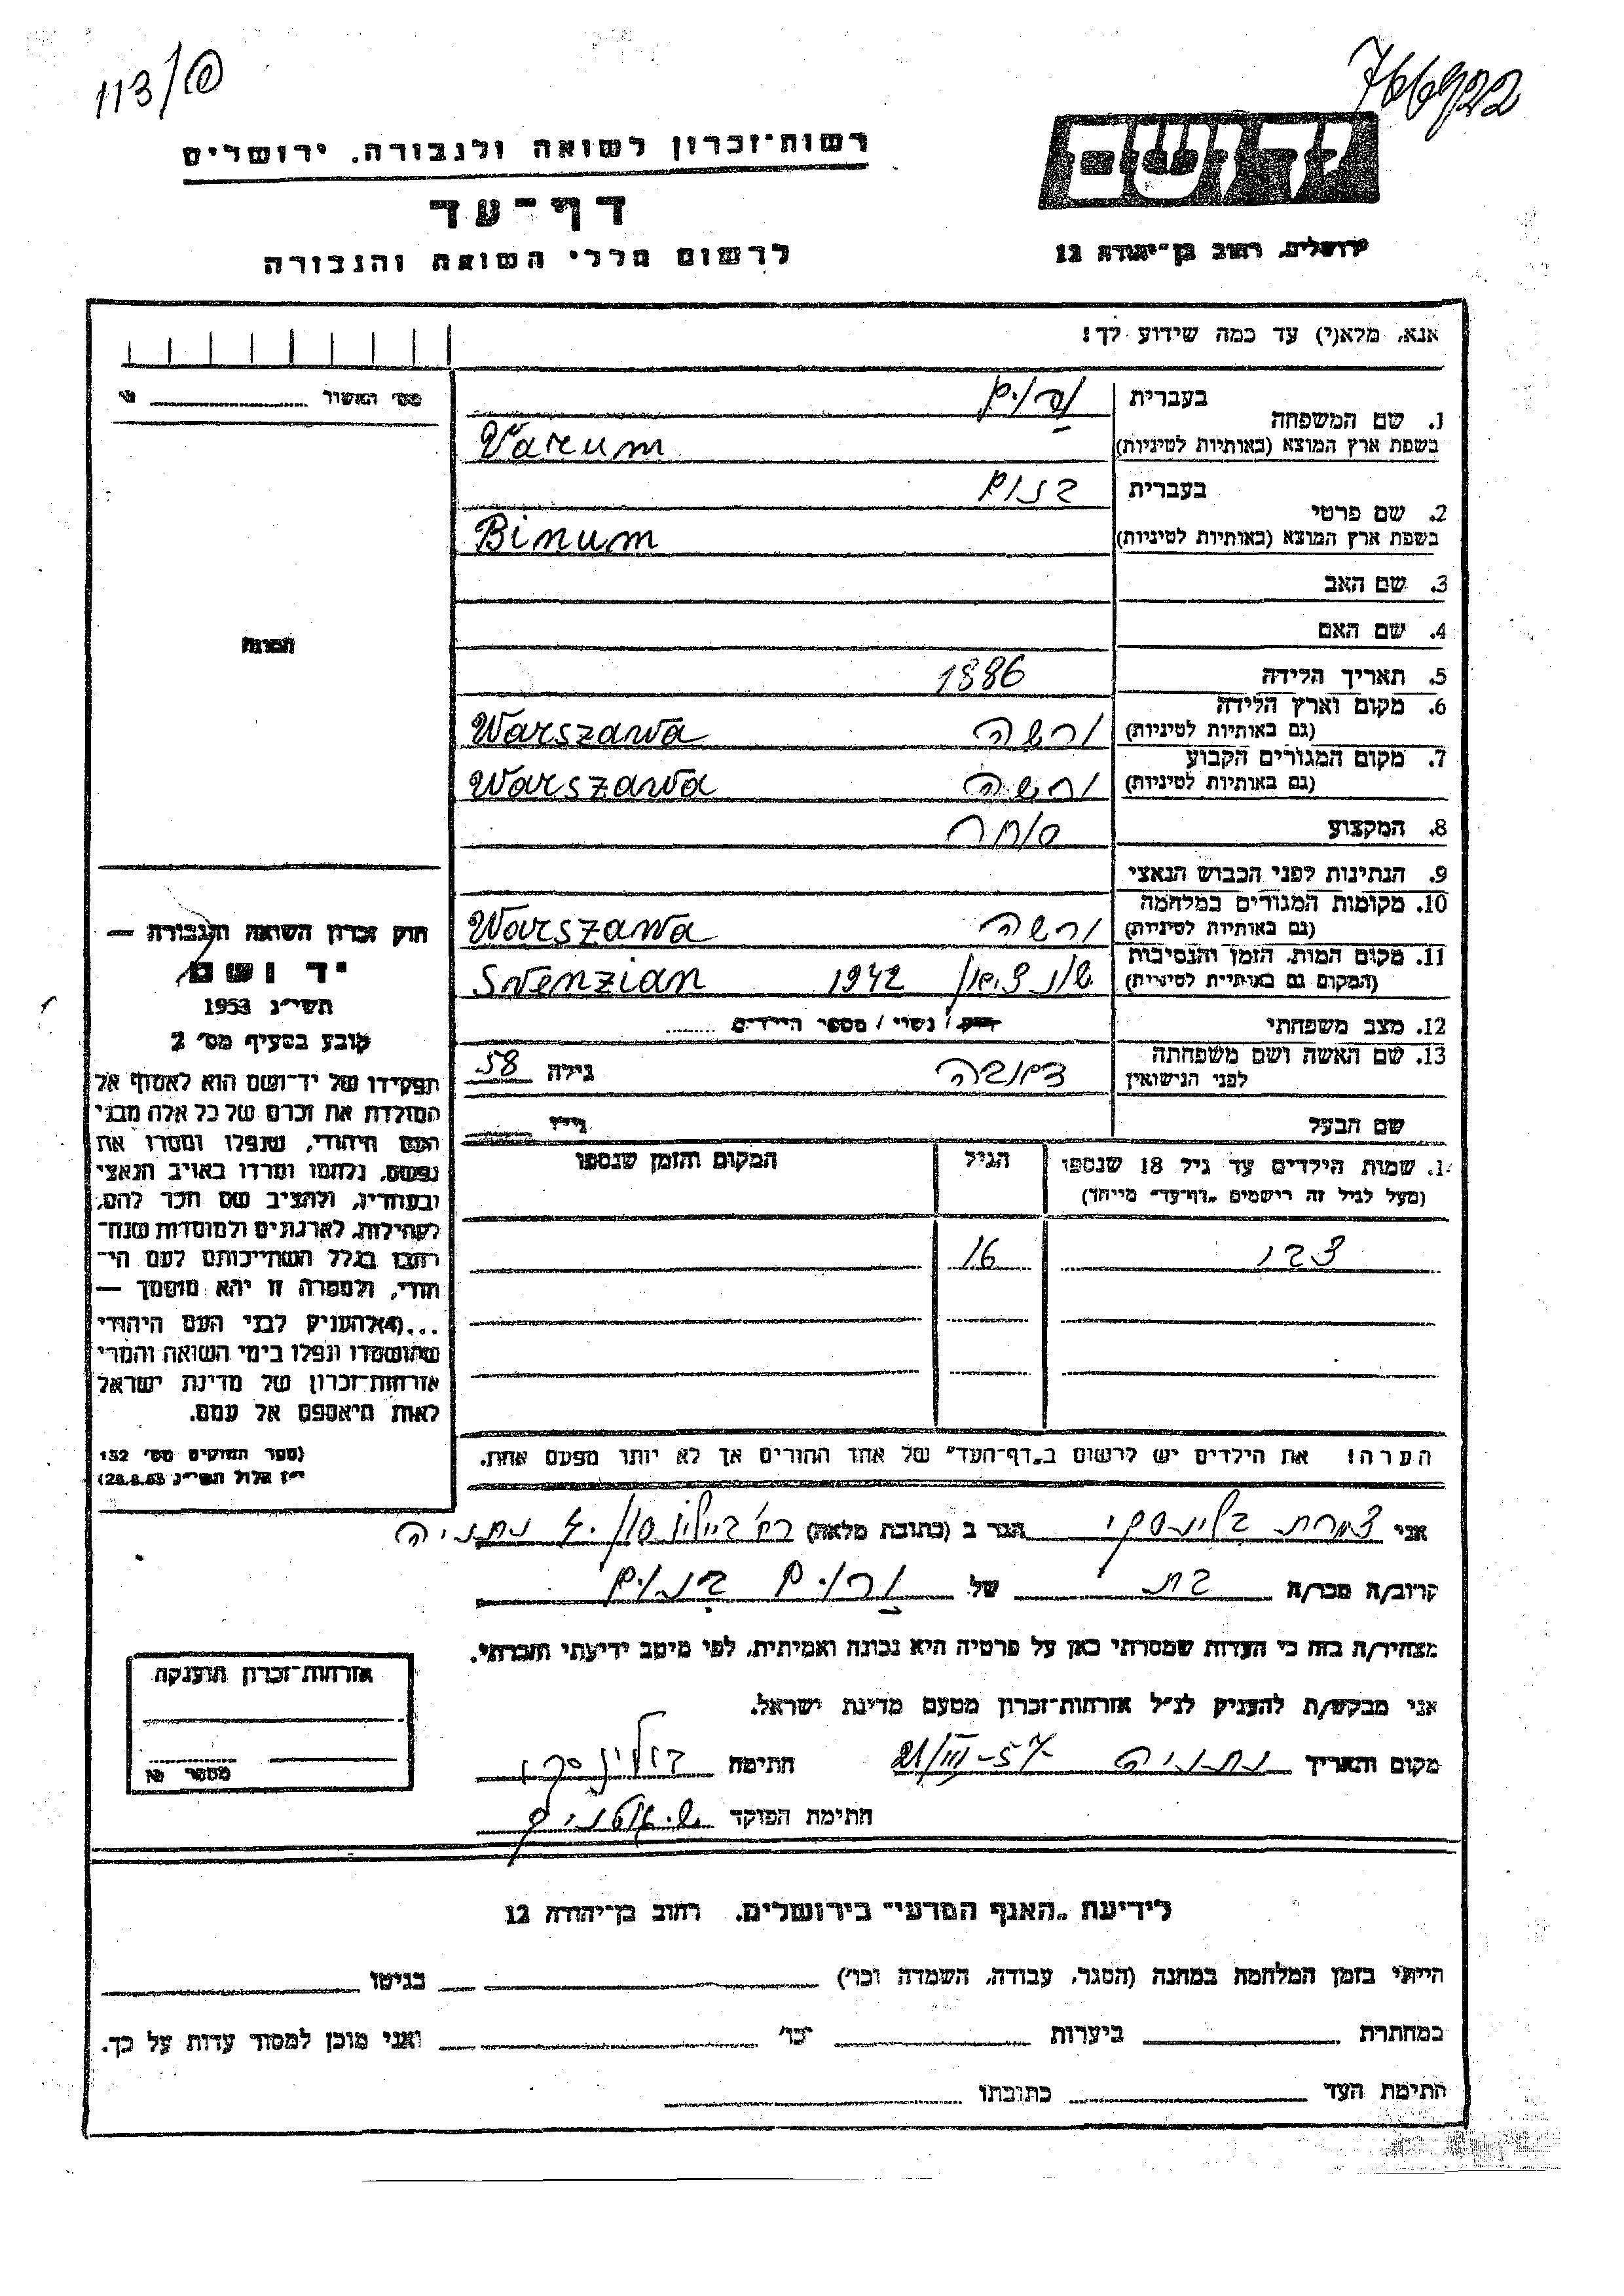 113/
766922
רשות־זכרון לשואה ולגבורה. ירושלים
יד ושם
דף־עד
לרשום חללי השואה והגבורה
ירושלים, רחוב בן־יהודה 12
אנא, מלא(י) עד כמה שידוע לך!
מס׳ האשור
1. שם המשפחה
בעברית ורום
בשפת ארץ המוצא (באותיות לטיניות) Varum
2. שם פרטי
בעברית בנום
בשפת ארץ המוצא (באותיות לטיניות) Binum
3. שם האב
4. שם האם
5. תאריך הלידה 1886
6. מקום וארץ הלידה
(גם באותיות לטיניות) ורשה Warszawa
7. מקום המגורים הקבוע
(גם באותיות לטיניות) ורשה Warszawa
8. המקצוע סוחר
9. הנתינות לפני הכבוש הנאצי
10. מקומות המגורים במלחמה
(גם באותיות לטיניות) ורשה Warszawa
11. מקום המות, הזמן והנסיבות
(המקום גם באותיות לטיניות) 1942 Swenzian
12. מצב משפחתי רווק / נשוי / מספר הילדים
13. שם האשה ושם משפחתה
לפני הנישואין גילה 58
שם הבעל גילו
14. שמות הילדים עד גיל 18 שנספו
(מעל לגיל זה רישמים „דף־עד״ מייוחד)
הגיל
המקום והזמן שנספו
16
הערה! את הילדים יש לרשום ב„דף־העד״ של אחד ההורים אך לא יותר מפעם אחת.
הערות
חוק זכרון השואה והגבורה —
יד ושם
תשי״ג 1953
קובע בסעיף מס׳ 2
תפקידו של יד־ושם הוא לאסוף אל
המולדת את זכרם של כל אלה מבני
העם היהודי, שנפלו ומסרו את
נפשם, נלחמו ומרדו באויב הנאצי
ובעוזריו, ולהציב שם וזכר להם,
לקהילות, לארגונים ולמוסדות שנח־
רבו בגלל השתייכותם לעם הי־
הודי, ולמטרה זו יהא מוסמך —
...(4) להעניק לבני העם היהודי
שהושמדו ונפלו בימי השואה והמרי
אזרחות־זכרון של מדינת ישראל
לאות היאספם אל עמם.
(ספר החוקים מס׳ 132
י״ז אלול תשי״ג 28.8.53)
אני הגר ב (כתובת מלאה) רח׳ נתניה
קרוב/ה מכר/ה בת של ורום בנום
מצהיר/ה בזה כי העדות שמסרתי כאן על פרטיה היא נכונה ואמיתית, לפי מיטב ידיעתי והכרתי.
אני מבקש/ת להעניק לנ״ל אזרחות־זכרון מטעם מדינת ישראל.
מקום ותאריך נתניה 21/III-57 חתימה
חתימת הפוקד
אזרחות־זכרון הוענקה
מספר
לידיעת „האגף המדעי״ בירושלים. רחוב בן־יהודה 12
הייתי בזמן המלחמה במחנה (הסגר, עבודה, השמדה וכו׳) בגיטו
במחתרת ביערות וכו׳ ואני מוכן למסור עדות על כך.
חתימת העד כתובתו